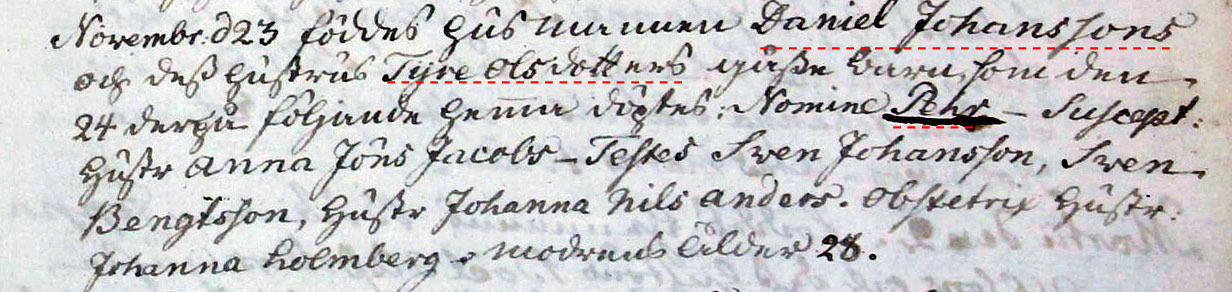 Novembr: d 23 föddes Husmannen Daniel Johanssons
och deß hustrus Tyre Olsdotters gåsse barn, som den
24 derpå följande hemma döptes: Nomine Pehr – Suscept:
Hustr Anna Jöns Jacobs – Testes Swen Johansson, Swen
Bengtsson, Hustr Johanna Nils Anders. Obstetrix Hustr:
Johanna Holmberg. Modrens Ålder 28.